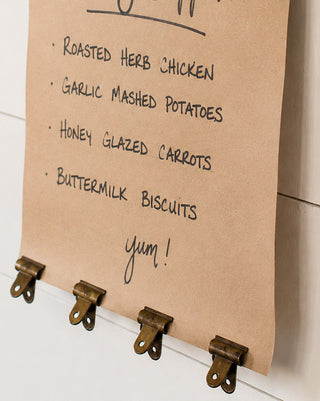 · ROASTED HERB CHICKEN
· GARLIC MASHED POTATOES
· HONEY GLAZED CARROTS
· BUTTERMILK BISCUITS
yum!